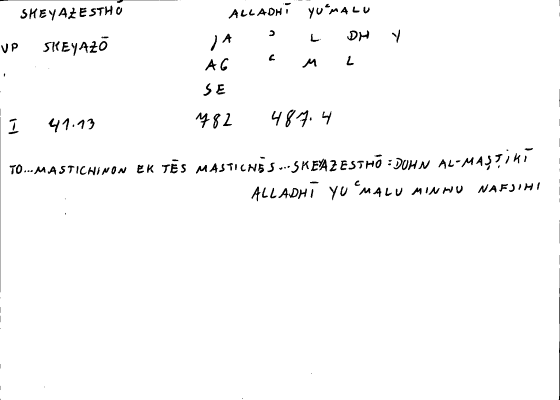 SKEYAZESTHŌ ALLADHĪ YUʿMALU
VP SKEYAZŌ JA ʾ L DH Y
AG ʿ M L
SE
I 41.13 782 487.4
TO...MASTICHINON EK TĒS MASTICHĒS...SKEAZESTHŌ:DUHN AL-MAṢṬIKĪ
ALLADHĪ YUʿMALU MINHU NAFSIHI